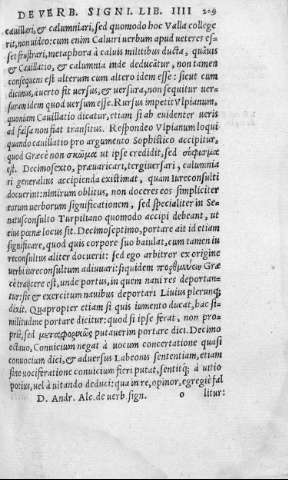 DE VERB. SIGNI. LIB. IIII 209
cauilleri, & calumniari, sed quomodo hoc Valla college
rit, non uideo: cum enim Caluiri uerbum apud ueteres es-
set frustrari, metaphora à caluis militibus ducta, quāuis
& Cauillatio, & calumnia inde deducātur, non tamen
consequens est alterum cum altero idem esse: sicut cum
dicimus, à uerto fit uersus, & uersura, non sequitur uer-
suram idem quod uersum esse. Rursus impetit Vlpianum,
quoniam Cauillatio dicatur, etiam si ab euidenter ueris
ad falsa non fiat transitus. Respondeo Vlpianum loqui
quando cauillatio pro argumento Sophistico accipitur,
quod Græcè non σκῶμμα ut ipse credidit, sed σόφισμα
est. Decimosexto, præuaricari, tergiuersari, calumnia
ri generalius accipienda existimat, quàm iureconsulti
docuerint: nimirum oblitus, non docere eos simpliciter
earum uerborum significationem, sed specialiter in Se-
natusconsulto Turpiliano quomodo accipi debeant, ut
eius pœnæ locus sit. Decimoseptimo, portare ait id etiam
significare, quod quis corpore suo baiulat, cum tamen iu
reconsultus aliter docuerit: sed ego arbitror ex origine
uerbi iureconsultum adiuuari: siquidem πορθμεύειν Græ
cè traijcere est, unde portus, in quem naui res deportan-
tur: sic & exercitum nauibus deportari Liuius plerunq;
dixit. Quapropter etiam si quis iumento ducat, hac si-
militudine portare dicitur: quod si ipse ferat, non pro-
priè, sed μεταφορικῶς putauerim portare dici. Decimo
octauo, Conuicium negat à uocum concertatione quasi
conuocium dici, & aduersus Labeonis sententiam, etiam
sine uociferatione conuicium fieri putat, sentitq; à uitio
potius, uel à uitando deduci: qua in re, opinor, egregiè fal
D. Andr. Alc. de uerb sign. o litur: